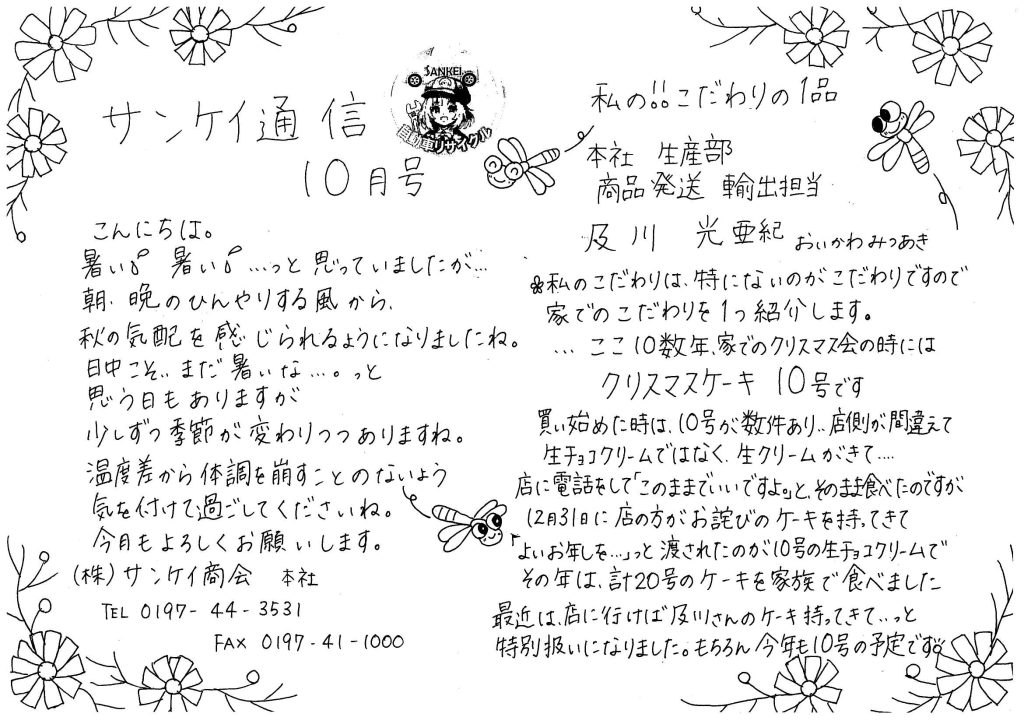 サンケイ通信
10月号
SANKEI
自動車リサイクル
こんにちは。
暑い 暑い …っと思っていましたが…
朝、晩のひんやりする風から、
秋の気配を感じられるようになりましたね。
日中こそ、まだ暑いな…。っと
思う日もありますが
少しずつ季節が変わりつつありますね。
温度差から体調を崩すことのないよう
気を付けて過ごしてくださいね。
今月もよろしくお願いします。
(株)サンケイ商会 本社
TEL 0197-44-3531
FAX 0197-41-1000
私の!!こだわりの1品
本社 生産部
商品発送 輸出担当
及川 光亜紀 おいかわみつあき
私のこだわりは、特にないのがこだわりですので
家でのこだわりを1つ紹介します。
… ここ10数年、家でのクリスマス会の時には
クリスマスケーキ 10号です
買い始めた時は、10号が数件あり、店側が間違えて
生チョコクリームではなく、生クリームがきて….
店に電話をして「このままでいいですよ。」と、そのまま食べたのですが
12月31日に店の方がお詫びのケーキを持ってきて
「よいお年しを…」っと渡されたのが10号の生チョコクリームで
その年は、計20号のケーキを家族で食べました
最近は、店に行けば及川さんのケーキ持ってきて…っと
特別扱いになりました。もちろん今年も10号の予定です。